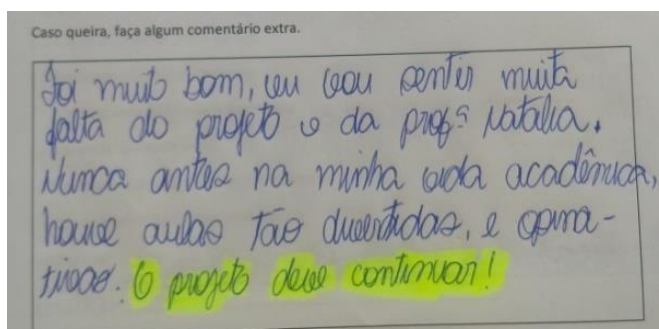 Caso queira, faça algum comentário extra.
Foi muito bom, eu vou sentir muita
falta do projeto e da profª Natalia.
Nunca antes na minha vida acadêmica,
houve aulas tão divertidas, e opina-
tivas. O projeto deve continuar!